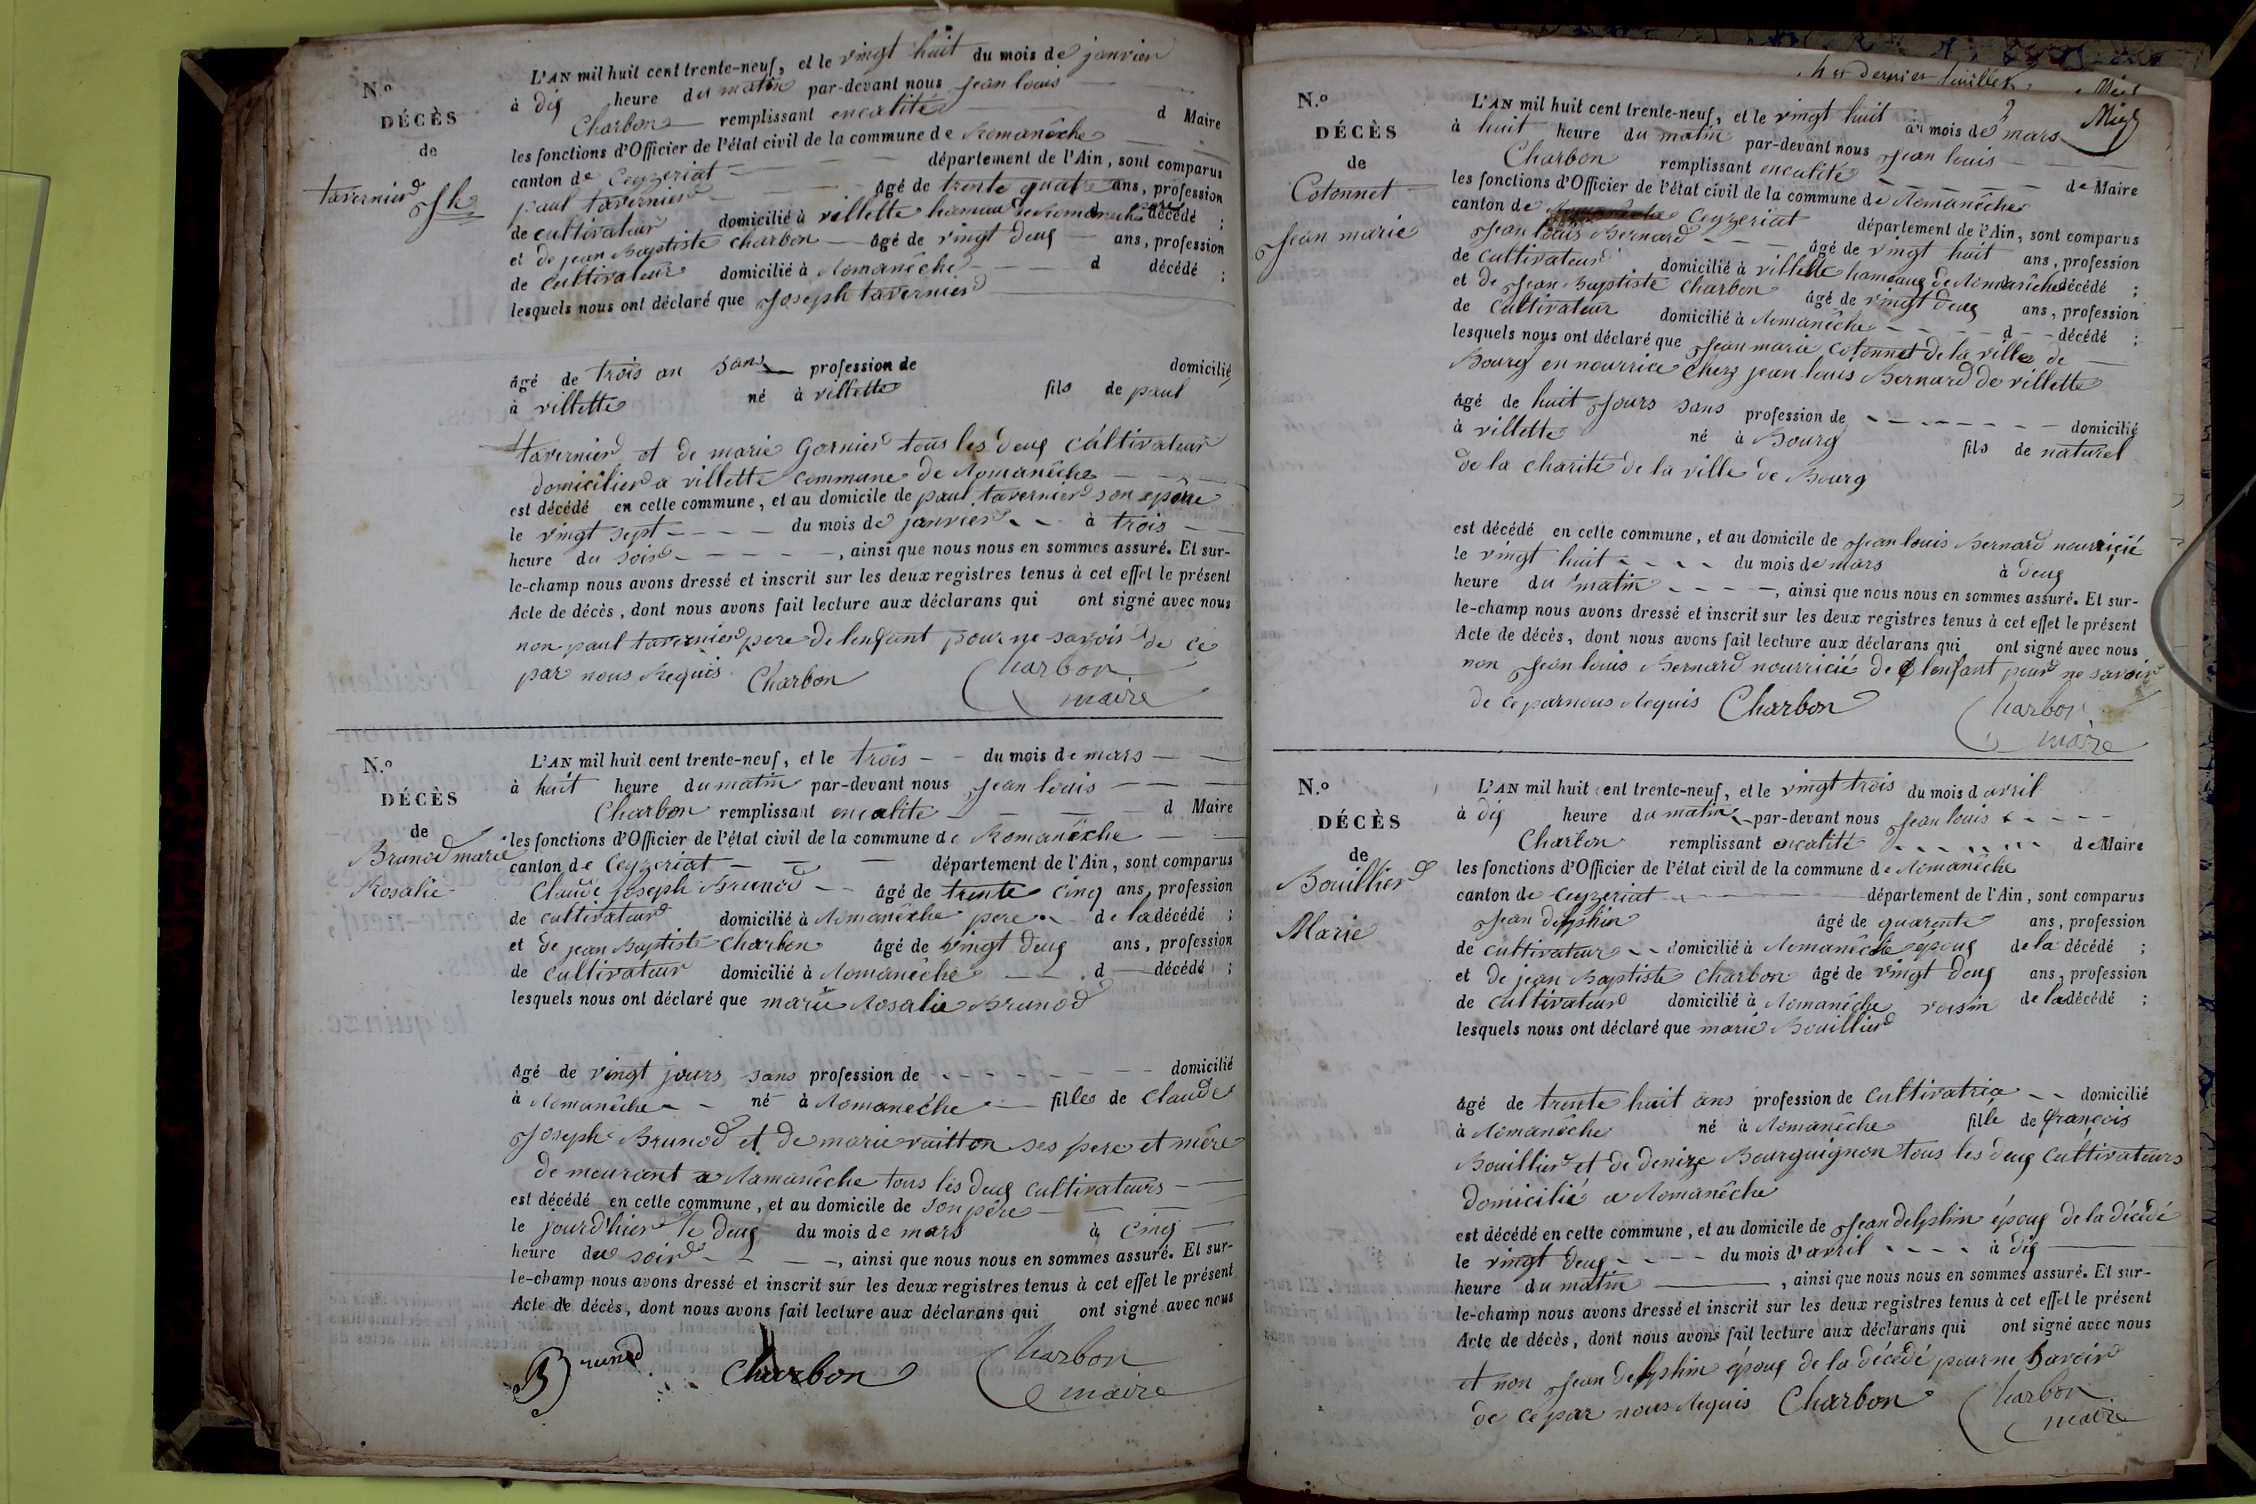 N.º
DÉCÈS
de
tavernier Jh
L'AN mil huit cent trente-neuf, et le vingt huit du mois de janvier
à dix heure du matin par-devant nous Jean louis
Charbon remplissant en calité d Maire
les fonctions d'Officier de l'état civil de la commune de Romanêche
canton de Ceyzeriat département de l'Ain, sont comparus
paul tavernier âgé de trente quatre ans, profession
de cultivateur domicilié à villette hameau de Romanêche père d décédé ;
et de jean Baptiste charbon âgé de vingt deux ans, profession
de Cultivateur domicilié à Romanêche d décédé ;
lesquels nous ont déclaré que Joseph tavernier
âgé de trois an sans profession de domicilié
à villette né à villette fils de paul
tavernier et de marie Gornier tous les deux cultivateur
domicilier a villette commune de Romanêche
est décédé en cette commune, et au domicile de paul tavernier son père
le vingt sept du mois de janvier à trois
heure du soir , ainsi que nous nous en sommes assuré. Et sur-
le-champ nous avons dressé et inscrit sur les deux registres tenus à cet effet le présent
Acte de décès, dont nous avons fait lecture aux déclarans qui ont signé avec nous
non paul tavernier pere de lenfant pour ne savoir de ce
par nous Requis Charbon Charbon
maire
N.º
DÉCÈS
de
Brunod marie
Rosalie
L'AN mil huit cent trente-neuf, et le trois du mois de mars
à huit heure du matin par-devant nous Jean louis
Charbon remplissant en calité d Maire
les fonctions d'Officier de l'état civil de la commune de Romanêche
canton de Ceyzeriat département de l'Ain, sont comparus
Claude Joseph Brunod âgé de trente cinq ans, profession
de cultivateur domicilié à Romanêche pere de la décédé ;
et de jean Baptiste Charbon âgé de vingt deux ans, profession
de cultivateur domicilié à Romanêche d décédé ;
lesquels nous ont déclaré que marie Rosalie Brunod
âgé de vingt jours sans profession de domicilié
à Romanêche né à Romanêche filles de Claude
Joseph Brunod et de marie vuitton ses pere et mère
de meurant a Romanêche tous les deux cultivateurs
est décédé en cette commune, et au domicile de Son père
le jourd'hier le deux du mois de mars à cinq
heure du soir , ainsi que nous nous en sommes assuré. Et sur-
le-champ nous avons dressé et inscrit sur les deux registres tenus à cet effet le présent
Acte de décès, dont nous avons fait lecture aux déclarans qui ont signé avec nous
Brunod Charbon Charbon
maire
et dernier feuillet
N.º
DÉCÈS
de
Cotonnet
Jean marie
L'AN mil huit cent trente-neuf, et le vingt huit du mois de mars
à huit heure du matin par-devant nous Jean louis
Charbon remplissant en calité de Maire
les fonctions d'Officier de l'état civil de la commune de Romanêche
canton de Ceyzeriat département de l'Ain, sont comparus
Jean louis Bernard âgé de vingt huit ans, profession
de cultivateur domicilié à villette hameaux de Romanêche décédé ;
et de Jean Baptiste Charbon âgé de vingt deux ans, profession
de Cultivateur domicilié à Romanêche d décédé ;
lesquels nous ont déclaré que Jean marie cotonnet de la ville de
Bourg en nourrice cherz jean louis Bernard de villette
âgé de huit Jours sans profession de domicilié
à villette né à Bourg fils de naturel
de la charité de la ville de Bourg
est décédé en cette commune, et au domicile de Jean louis Bernard nourricié
le vingt huit du mois de mars à deux
heure du matin , ainsi que nous nous en sommes assuré. Et sur-
le-champ nous avons dressé et inscrit sur les deux registres tenus à cet effet le présent
Acte de décès, dont nous avons fait lecture aux déclarans qui ont signé avec nous
non Jean louis Bernard nourricié de lenfant pour ne savoir
de ce par nous Requis Charbon Charbon
maire
N.º
DÉCÈS
de
Bouillier
Marie
L'AN mil huit cent trente-neuf, et le vingt trois du mois d avril
à dix heure du matin par-devant nous Jean louis
Charbon remplissant en calité de Maire
les fonctions d'Officier de l'état civil de la commune de Romanêche
canton de Ceyzeriat département de l'Ain, sont comparus
Jean delphin âgé de quarente ans, profession
de cultivateur domicilié à Romanêche époux de la décédé ;
et de jean Baptiste Charbon âgé de vingt deux ans, profession
de cultivateur domicilié à Romanêche voisin de la décédé ;
lesquels nous ont déclaré que marie Bouillier
âgé de trente huit ans profession de Cultivatrice domicilié
à Romanêche né à Romanêche fille de françois
Bouillier et de denize Bourguignon tous les deux Cultivateurs
domicilié a Romanêche
est décédé en cette commune, et au domicile de Jean delphin époux de la décédé
le vingt deux du mois d'avril à dix
heure du matin , ainsi que nous nous en sommes assuré. Et sur-
le-champ nous avons dressé et inscrit sur les deux registres tenus à cet effet le présent
Acte de décès, dont nous avons fait lecture aux déclarans qui ont signé avec nous
et non Jean delphin époux de la décédé pour ne Savoir
de ce par nous Requis Charbon Charbon
maire